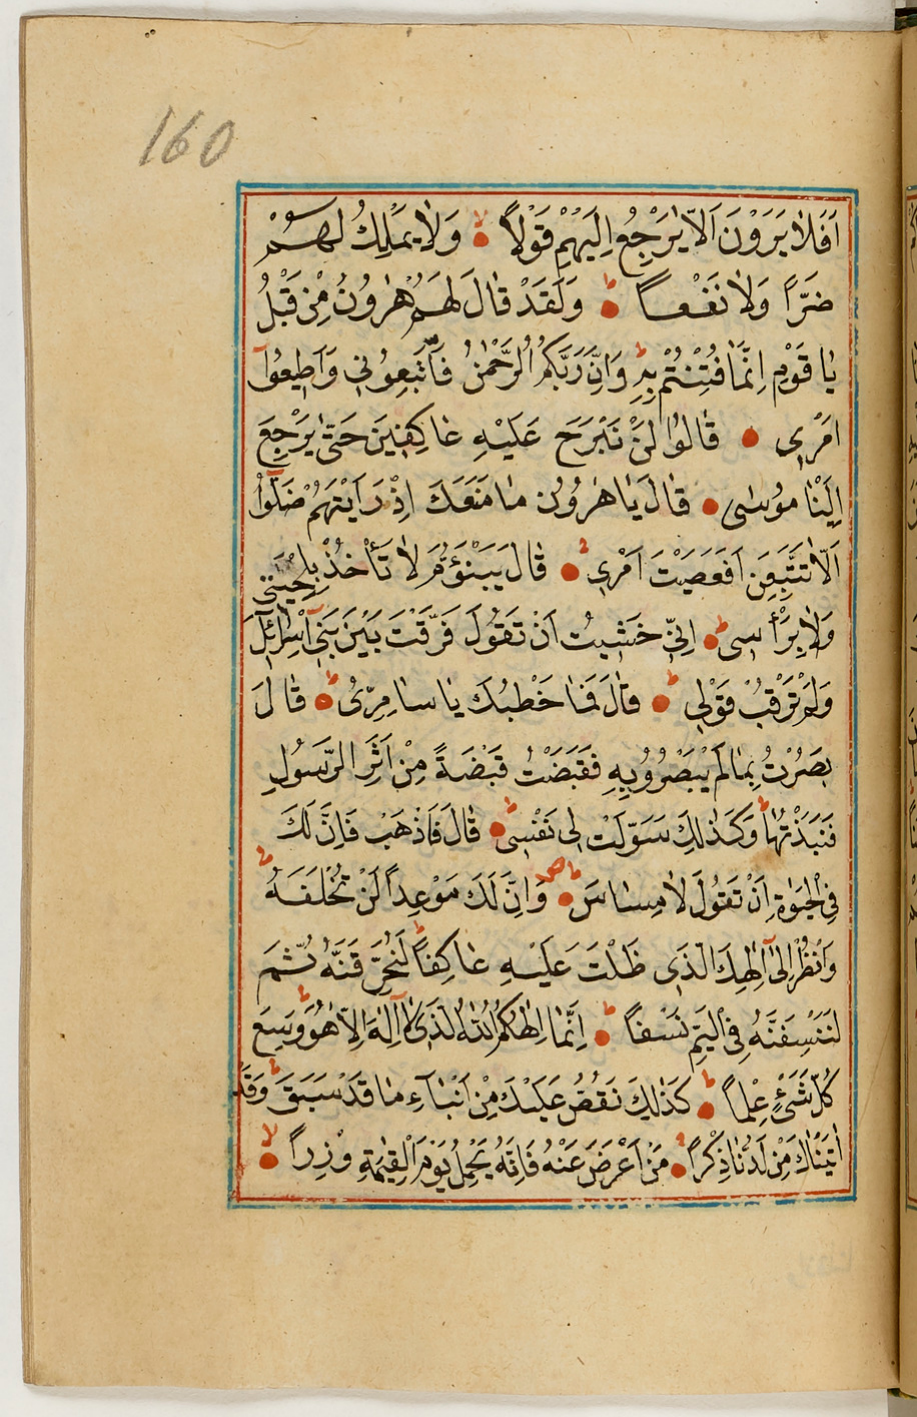 160
اَفَلٰا يَرَوْنَ اَلّٰا يَرْجِعُ اِلَيْهِمْ قَوْلاً لا وَلٰا يَمْلِكُ لَهُمْ
ضَرّاً وَلٰا نَفْعاً ط وَلَقَدْ قٰالَ لَهُمْ هٰرُونُ مِنْ قَبْلُ
يٰا قَوْمِ اِنَّمٰا فُتِنْتُمْ بِهِ ط وَاِنَّ رَبَّكُمُ الرَّحْمٰنُ فَاتَّبِعُونِي وَاَطِيعُوٓا
اَمْرِي قٰالُوا لَنْ نَبْرَحَ عَلَيْهِ عٰاكِفِينَ حَتّٰى يَرْجِعَ
اِلَيْنٰا مُوسٰى قٰالَ يٰا هٰرُونُ مٰا مَنَعَكَ اِذْ رَاَيْتَهُمْ ضَلُّوٓا
اَلّٰا تَتَّبِعَنِ اَفَعَصَيْتَ اَمْرِي قٰالَ يَبْنَؤُمَّ لٰا تَأْخُذْ بِلِحْيَتِي
وَلٰا بِرَأْسِي ط اِنِّي خَشِيتُ اَنْ تَقُولَ فَرَّقْتَ بَيْنَ بَنِيٓ اِسْرٰائِلَ
وَلَمْ تَرْقُبْ قَوْلِي ط قٰالَ فَمٰا خَطْبُكَ يٰا سٰامِرِيُّ ط قٰالَ
بَصُرْتُ بِمٰا لَمْ يَبْصُرُوا بِهِ فَقَبَضْتُ قَبْضَةً مِنْ اَثَرِ الرَّسُولِ
فَنَبَذْتُهٰا ط وَكَذٰلِكَ سَوَّلَتْ لِي نَفْسِي ط قٰالَ فَاذْهَبْ فَاِنَّ لَكَ
فِي الْحَيٰوةِ اَنْ تَقُولَ لٰا مِسٰاسَ ط ص وَاِنَّ لَكَ مَوْعِداً لَنْ تُخْلَفَهُ ط
وَانْظُرْ اِلىٰٓ اِلٰهِكَ الَّذِي ظَلْتَ عَلَيْهِ عٰاكِفاً ط لَنُحَرِّقَنَّهُ ثُمَّ
لَنَنْسِفَنَّهُ فِي الْيَمِّ نَسْفاً ط اِنَّمٰا اِلٰهُكُمُ اللّٰهُ الَّذِي لٰٓا اِلٰهَ اِلّٰا هُوَ ط وَسِعَ
كُلَّ شَيْءٍ عِلْماً ط كَذٰلِكَ نَقُصُّ عَلَيْكَ مِنْ اَنْبٰٓاءِ مٰا قَدْ سَبَقَ ط وَقَدْ
اٰتَيْنٰاكَ مِنْ لَدُنّٰا ذِكْراً مَنْ اَعْرَضَ عَنْهُ فَاِنَّهُ يَحْمِلُ يَوْمَ الْقِيٰمَةِ وِزْراً لا